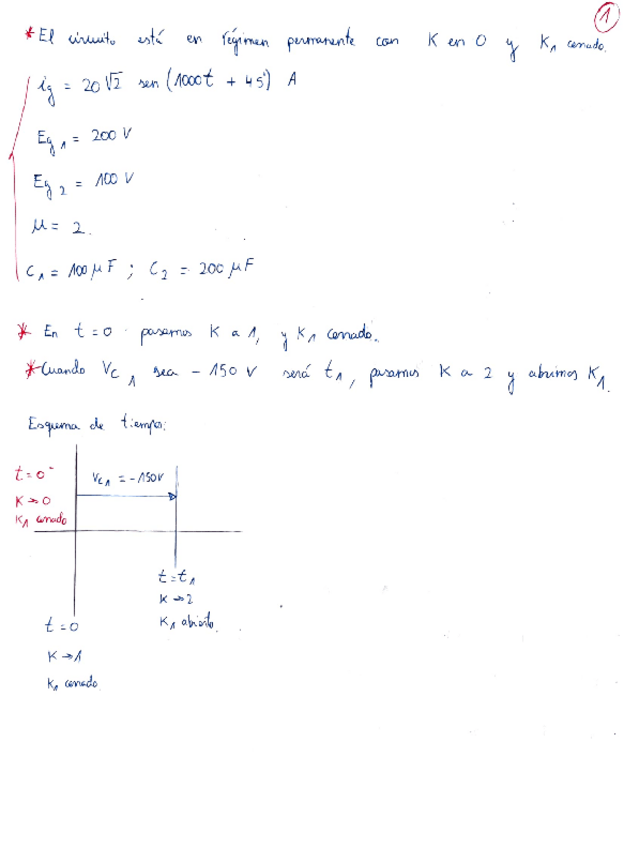 1
* El circuito está en régimen permanente con K en 0 y K₁ cerrado.
ig = 20√2 sen (1000t + 45°) A
Eg₁ = 200 V
Eg₂ = 100 V
μ = 2.
C₁ = 100 μF ; C₂ = 200 μF
* En t=0 pasamos K a 1, y K₁ cerrado.
* Cuando Vc₁ sea -150 V será t₁, pasamos K a 2 y abrimos K₁.
Esquema de tiempos:
t=0⁻
K→0
K₁ cerrado
Vc₁ = -150V
t=t₁
K→2
K₁ abierto.
t=0
K→1
K₁ cerrado.